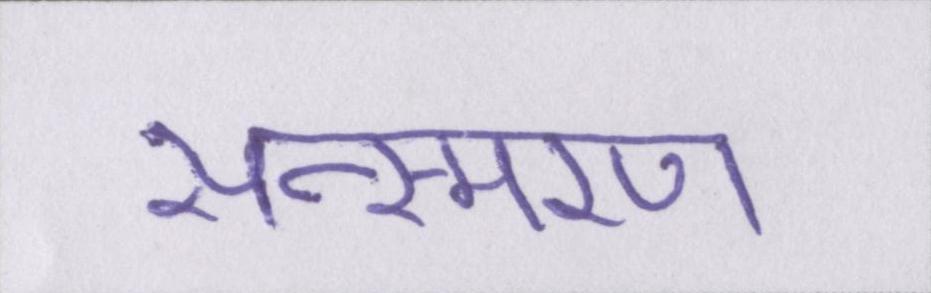 सन्स्मरण